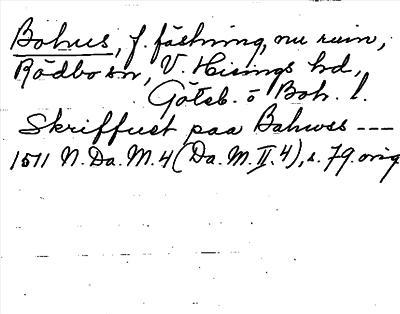 Bohus, f. fästning, nu ruin,
Rödbo sn, V. Hisings hd,
Göteb. o Boh. l.
Skriffuet paa Bahwss ---
1511 N. Da. M. 4 (Da. M. II. 4), s. 79. orig